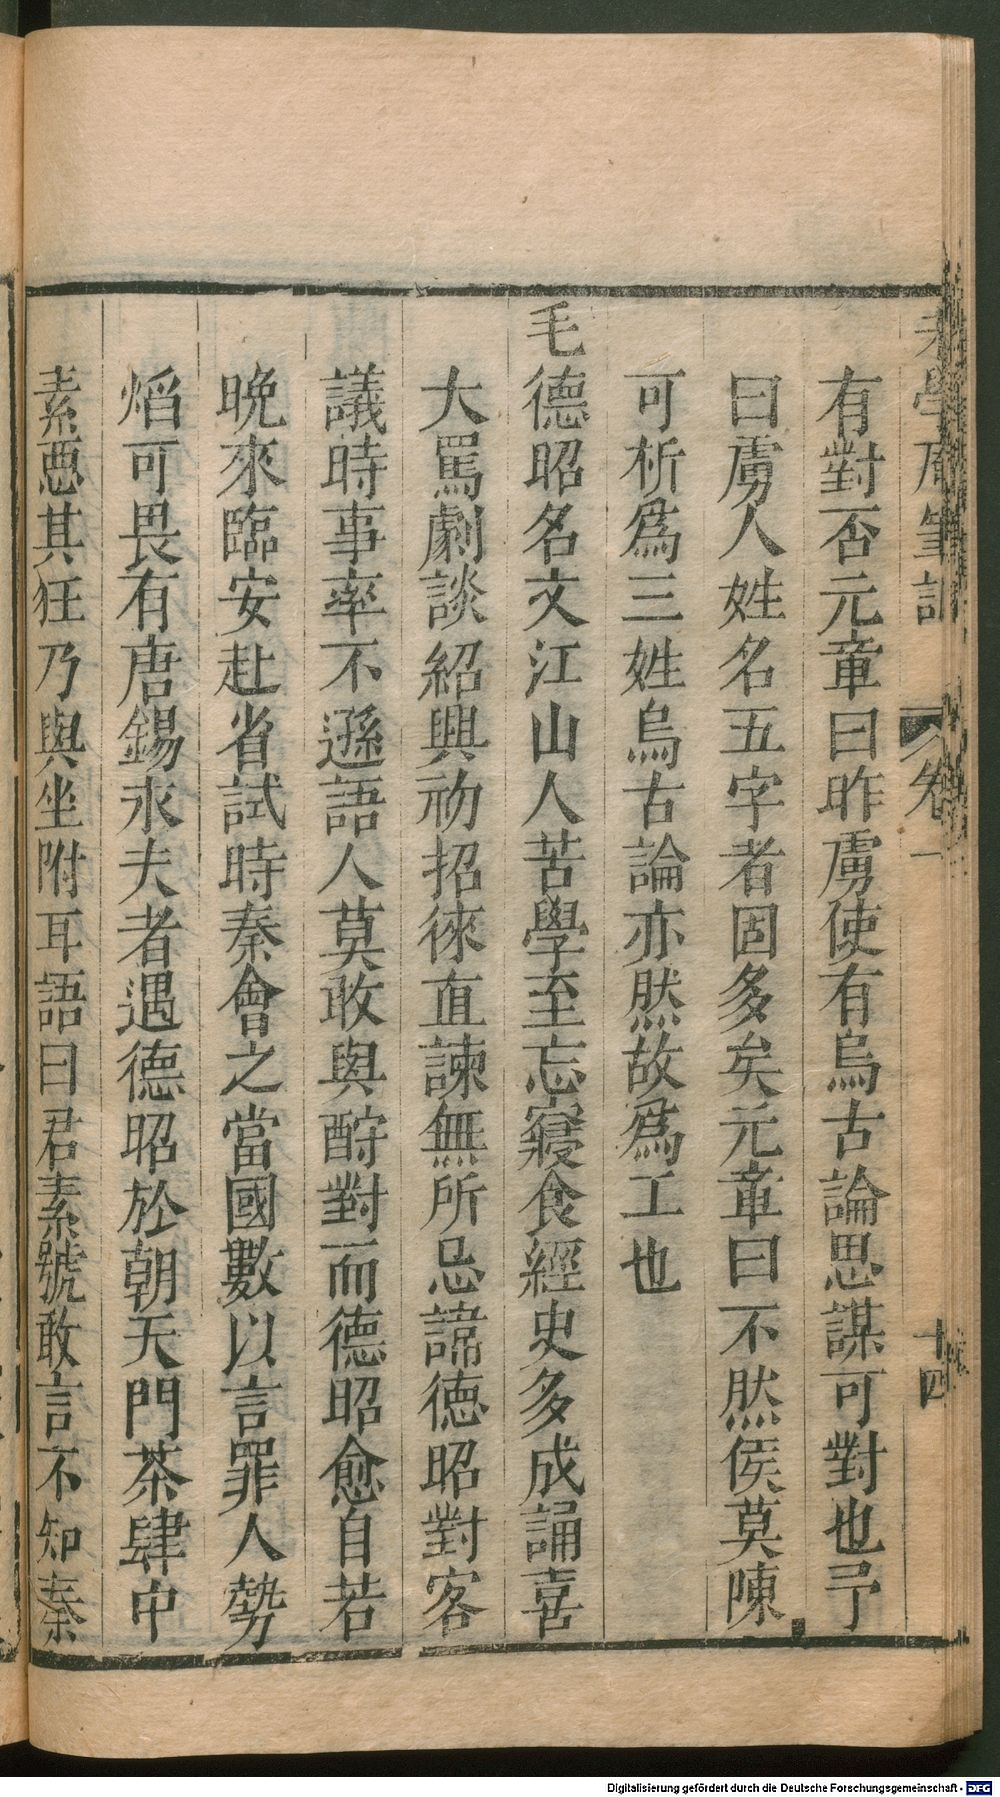 老學庵筆記 卷一 十四
有對否元章曰昨虜使有烏古論思謀可對也予
曰虜人姓名五字者固多矣元章曰不然侯莫陳
可析爲三姓烏古論亦然故爲工也
毛德昭名文江山人苦學至忘寢食經史多成誦喜
大罵劇談紹興初招徠直諫無所忌諱德昭對客
議時事率不遜語人莫敢與酬對而德昭愈自若
晚來臨安赴省試時秦會之當國數以言罪人勢
焰可畏有唐錫永夫者遇德昭於朝天門茶肆中
素惡其狂乃與坐附耳語曰君素號敢言不知秦
Digitalisierung gefördert durch die Deutsche Forschungsgemeinschaft - DFG